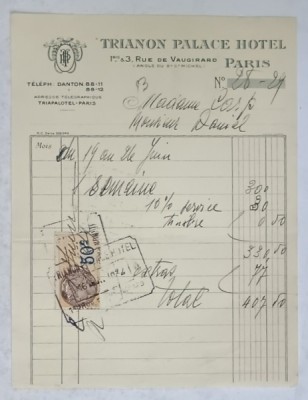 TRIANON PALACE HOTEL
1bis & 3, RUE DE VAUGIRARD
(ANGLE DU BD ST MICHEL)
PARIS
TÉLÉPH DANTON 88-11
88-12
ADRESSE TÉLÉGRAPHIQUE
TRIAPALOTEL-PARIS
No 28-29
Madame
Monsieur Daniel
Mois
du 19 au 26 Juin
1 semaine 300
10% service 30
timbre 0 50
330 50
extras 77
Total 407 50
50c
HOTEL